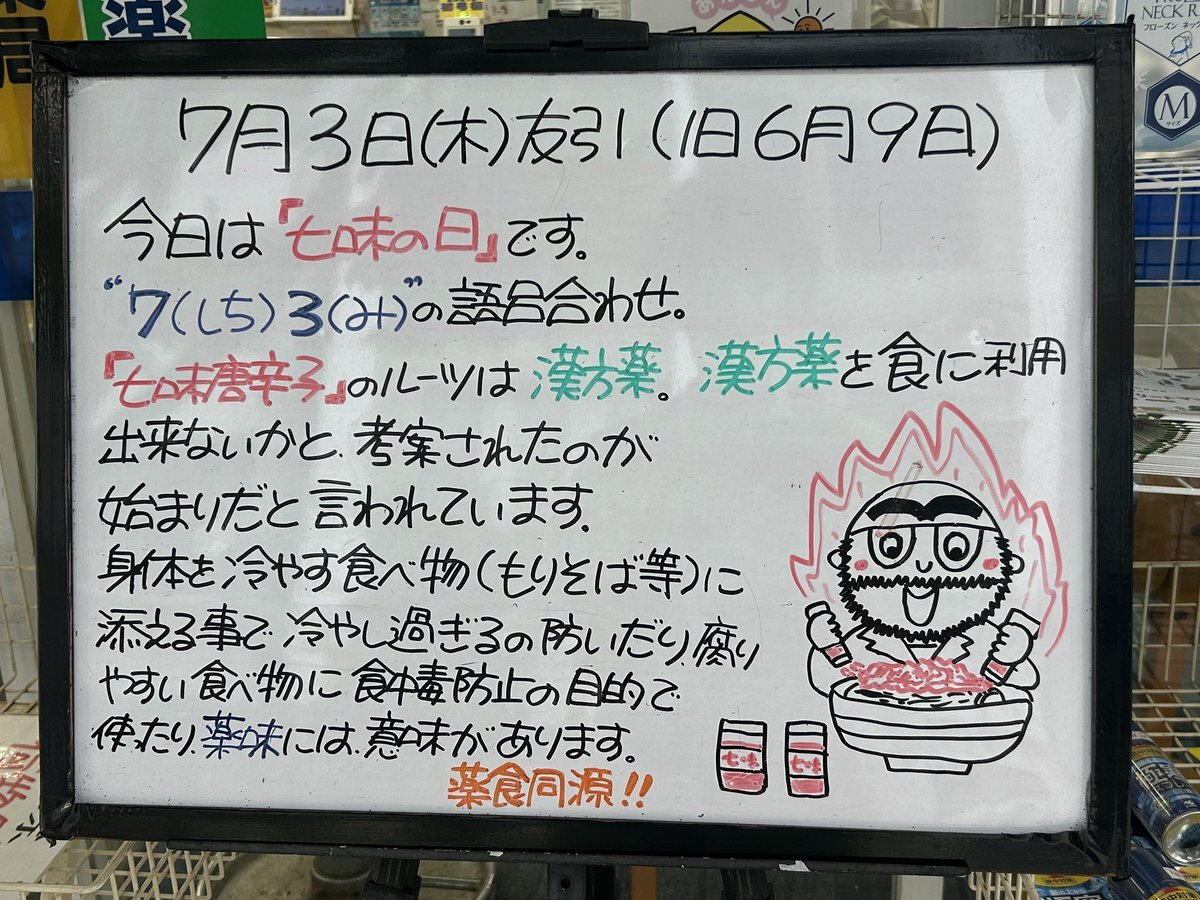 薬
NECK R
フローズン ネック
M
サイズ
7月3日(木)友引(旧6月9日)
今日は『七味の日』です。
“7(しち)3(み)”の語呂合わせ。
『七味唐辛子』のルーツは漢方薬。漢方薬を食に利用
出来ないかと、考案されたのが
始まりだと言われています。
身体を冷やす食べ物(もりそば等)に
添える事で冷やし過ぎるの防いだり、腐り
やすい食べ物に食中毒防止の目的で
使ったり、薬味には、意味があります。
薬食同源!!
七味
七味